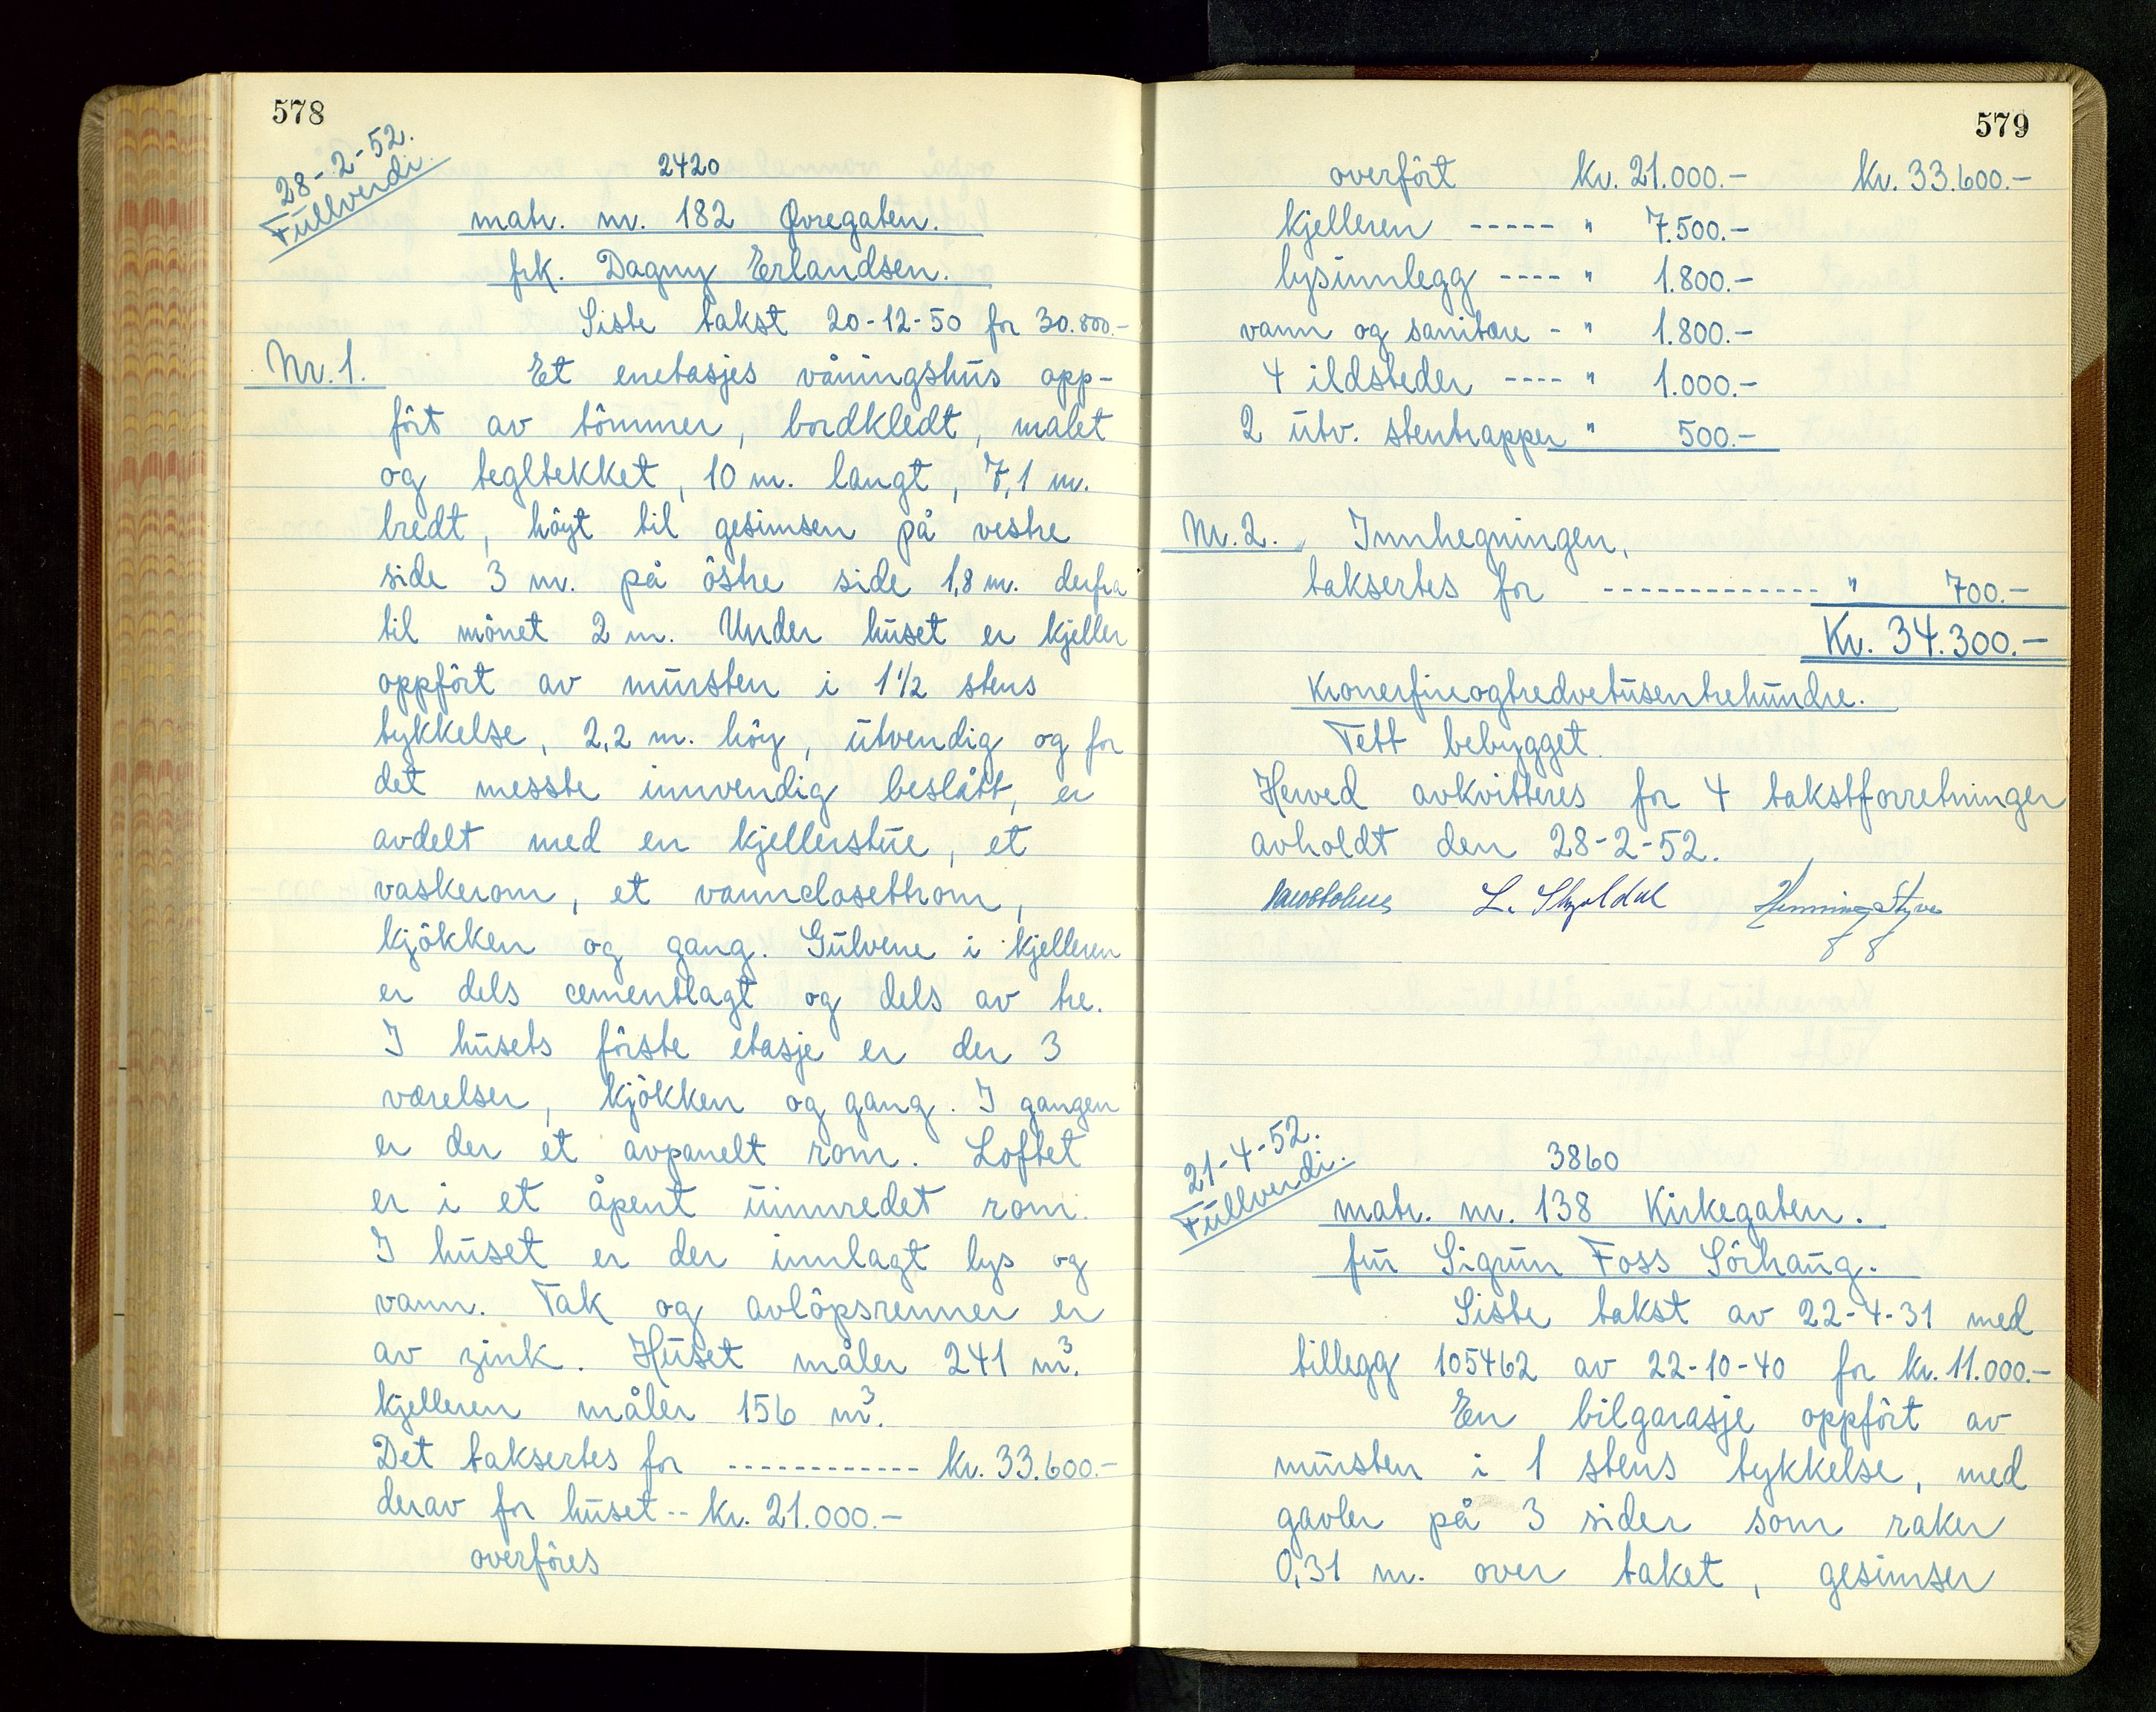 578
28-2-52.
Fullverdi.
2420
matr. nr. 182 Øvregaten.
frk. Dagny Erlandsen.
Siste takst 20-12-50 for 30.800.-
Nr. 1. Et enetasjes våningshus opp-
ført av tømmer, bordkledt, malet
og tegltekket, 10 m. langt, 7,1 m.
bredt, høyt til gesimsen på vestre
side 3 m. på østre side 1,8 m. derfra
til mønet 2 m. Under huset er kjeller
oppført av mursten i 1 1/2 stens
tykkelse, 2,2 m. høy, utvendig og for
det messte innvendig beslått, er
avdelt med en kjellerstue, et
vaskerom, et vannclosettrom,
kjøkken og gang. Gulvene i kjelleren
er dels cementlagt og dels av tre.
I husets første etasje er der 3
værelser, kjøkken og gang. I gangen
er der et avpanelt rom. Loftet
er i et åpent uinnredet rom.
I huset er der innlagt lys og
vann. Tak og avløpsrenner er
av zink. Huset måler 241 m³.
kjelleren måler 156 m³.
Det taksertes for ------------ kr. 33.600.-
derav for huset -- kr. 21.000.-
overføres
579
overført kr. 21.000.- kr. 33.600.-
kjelleren ----- " 7.500.-
lysinnlegg ---- " 1.800.-
vann og sanitære - " 1.800.-
4 ildsteder ---- " 1.000.-
2 utv. stentrapper " 500.-
Nr. 2. Innhegningen,
taksertes for ------------- " 700.-
Kr. 34.300.-
Kronerfireogtredvetusentrehundre.
Tett bebygget.
Herved avkvitteres for 4 takstforretninger
avholdt den 28-2-52.
L. Skjoldal Henning Styve
21-4-52.
Fullverdi.
3860
matr. nr. 138 Kirkegaten.
fru Sigrun Foss Sørhaug.
Siste takst av 22-4-31 med
tillegg 105462 av 22-10-40 for kr. 11.000.-
En bilgarasje oppført av
mursten i 1 stens tykkelse, med
gavler på 3 sider som raker
0,31 m. over taket, gesimser